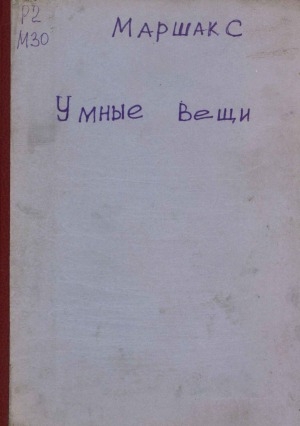 Р2
М30
Маршак С
Умные вещи